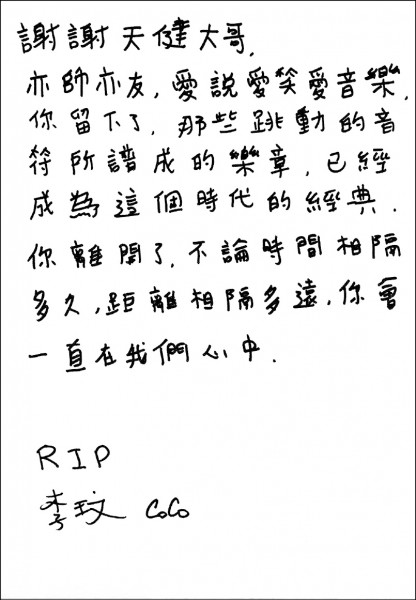 謝謝天健大哥.
亦師亦友, 愛說愛笑愛音樂.
你留下了, 那些跳動的音
符所譜成的樂章, 已經
成為這個時代的經典.
你離開了, 不論時間相隔
多久, 距離相隔多遠, 你會
一直在我們心中.
RIP
李玟 CoCo